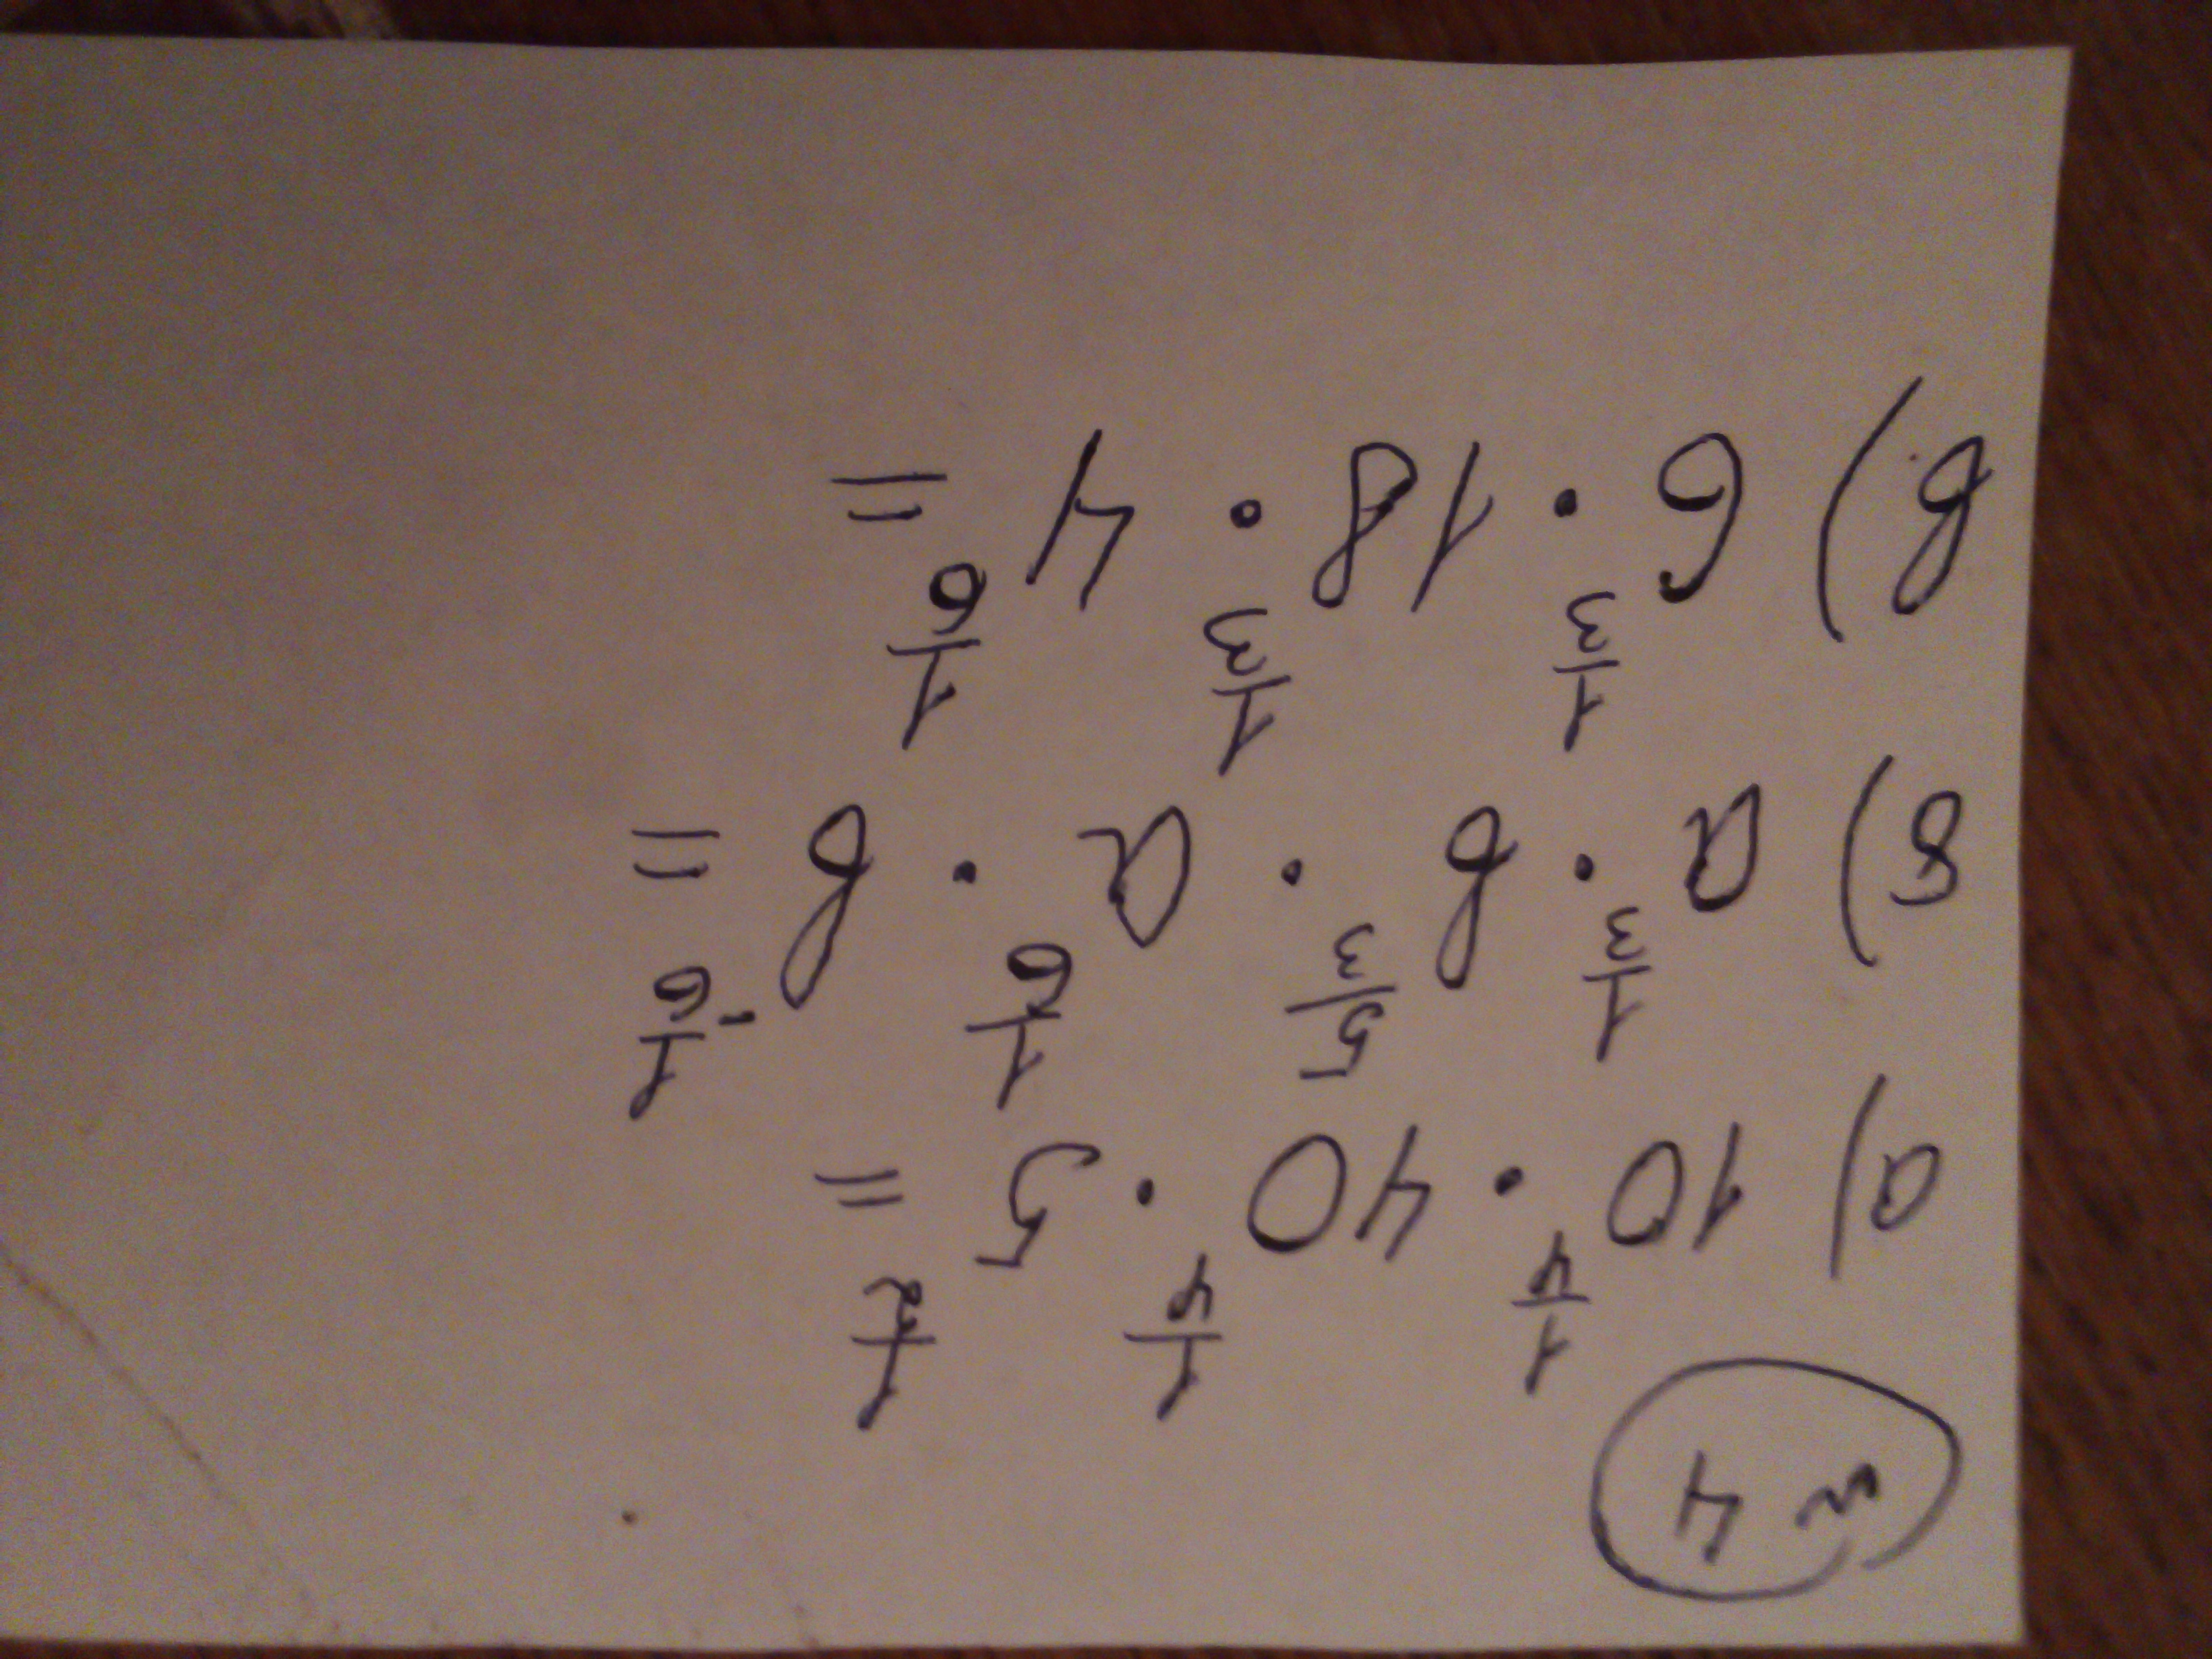 n 4
а) 10^{1/4} · 40^{1/4} · 5^{1/2} =
б) a^{1/3} · b^{5/3} · a^{1/6} · b^{-1/6} =
в) 6^{1/3} · 18^{1/3} · 4^{1/6} =